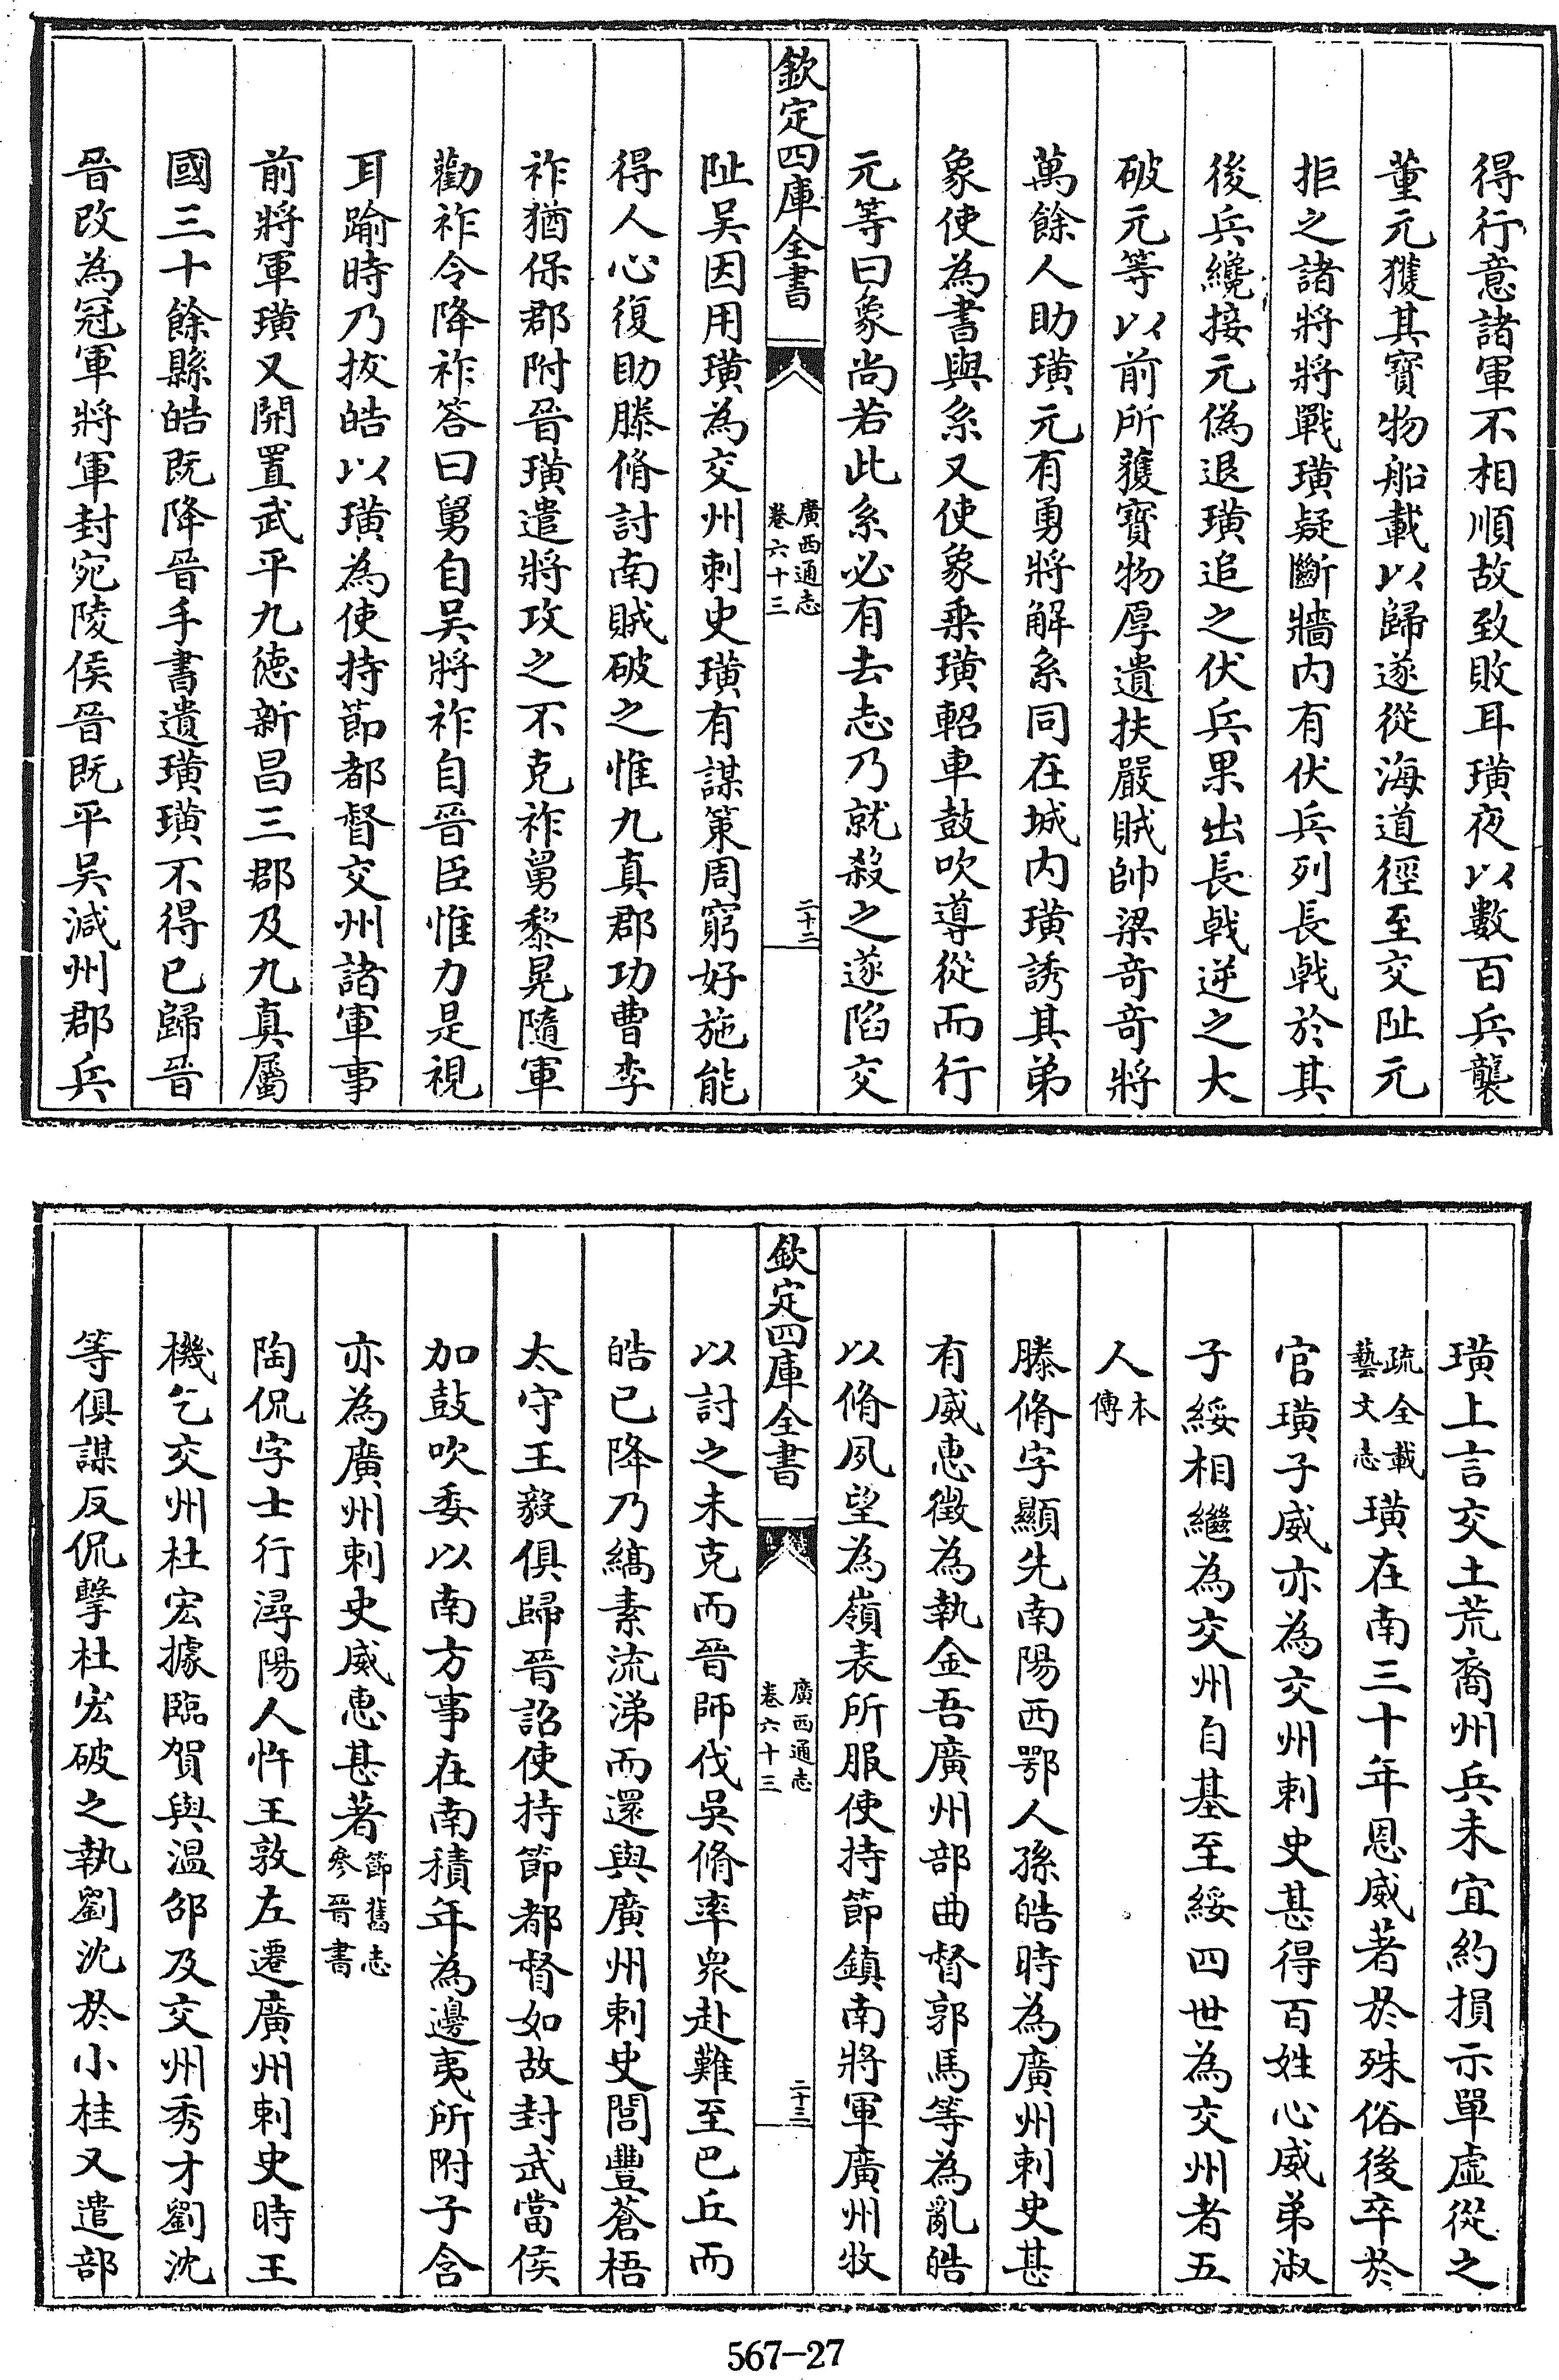 得行意諸軍不相順故致敗耳璜夜以數百兵襲
董元獲其寶物船載以歸遂從海道徑至交阯元
拒之諸將將戰璜疑斷牆内有伏兵列長㦸於其
後兵纔接元偽退璜追之伏兵果出長㦸逆之大
破元等以前所獲寳物厚遺扶嚴賊帥梁奇奇將
萬餘人助璜元有勇將解系同在城内璜誘其弟
象使為書與系又使象乗璜軺車鼓吹導從而行
元等曰象尚若此系必有去志乃就殺之遂陷交
欽定四庫全書
廣西通志
卷六十三
二十二
阯吴因用璜為交州刺史璜有謀策周窮好施能
得人心復助滕脩討南賊破之惟九真郡功曹李
祚猶保郡附晉璜遣將攻之不克祚舅黎晃隨軍
勸祚令降祚答曰舅自吴將祚自晉臣惟力是視
耳踰時乃拔皓以璜為使持節都督交州諸軍事
前將軍璜又開置武平九徳新昌三郡及九真屬
國三十餘縣皓既降晉手書遺璜璜不得已歸晉
晉改為冠軍將軍封宛陵侯晉既平吴減州郡兵
璜上言交土荒裔州兵未宜約損示單虚從之
疏全載
藝文志
璜在南三十年恩威著於殊俗後卒於
官璜子威亦為交州刺史甚得百姓心威弟淑
子綏相繼為交州自基至綏四世為交州者五
人
本
傳
滕脩字顯先南陽西鄂人孫皓時為廣州刺史甚
有威惠徵為執金吾廣州部曲督郭馬等為亂皓
以脩夙望為嶺表所服使持節鎮南將軍廣州牧
欽定四庫全書
廣西通志
卷六十三
二十三
以討之未克而晉師伐吳脩率衆赴難至巴丘而
皓已降乃縞素流涕而還與廣州刺史閭豐蒼梧
太守王毅俱歸晉詔使持節都督如故封武當侯
加鼓吹委以南方事在南積年為邊夷所附子含
亦為廣州刺史威惠甚著
節舊志
參晉書
陶侃字士行潯陽人忤王敦左遷廣州刺史時王
機乞交州杜宏據臨賀與温邵及交州秀才劉沈
等俱謀反侃擊杜宏破之執劉沈於小桂又遣部
567-27